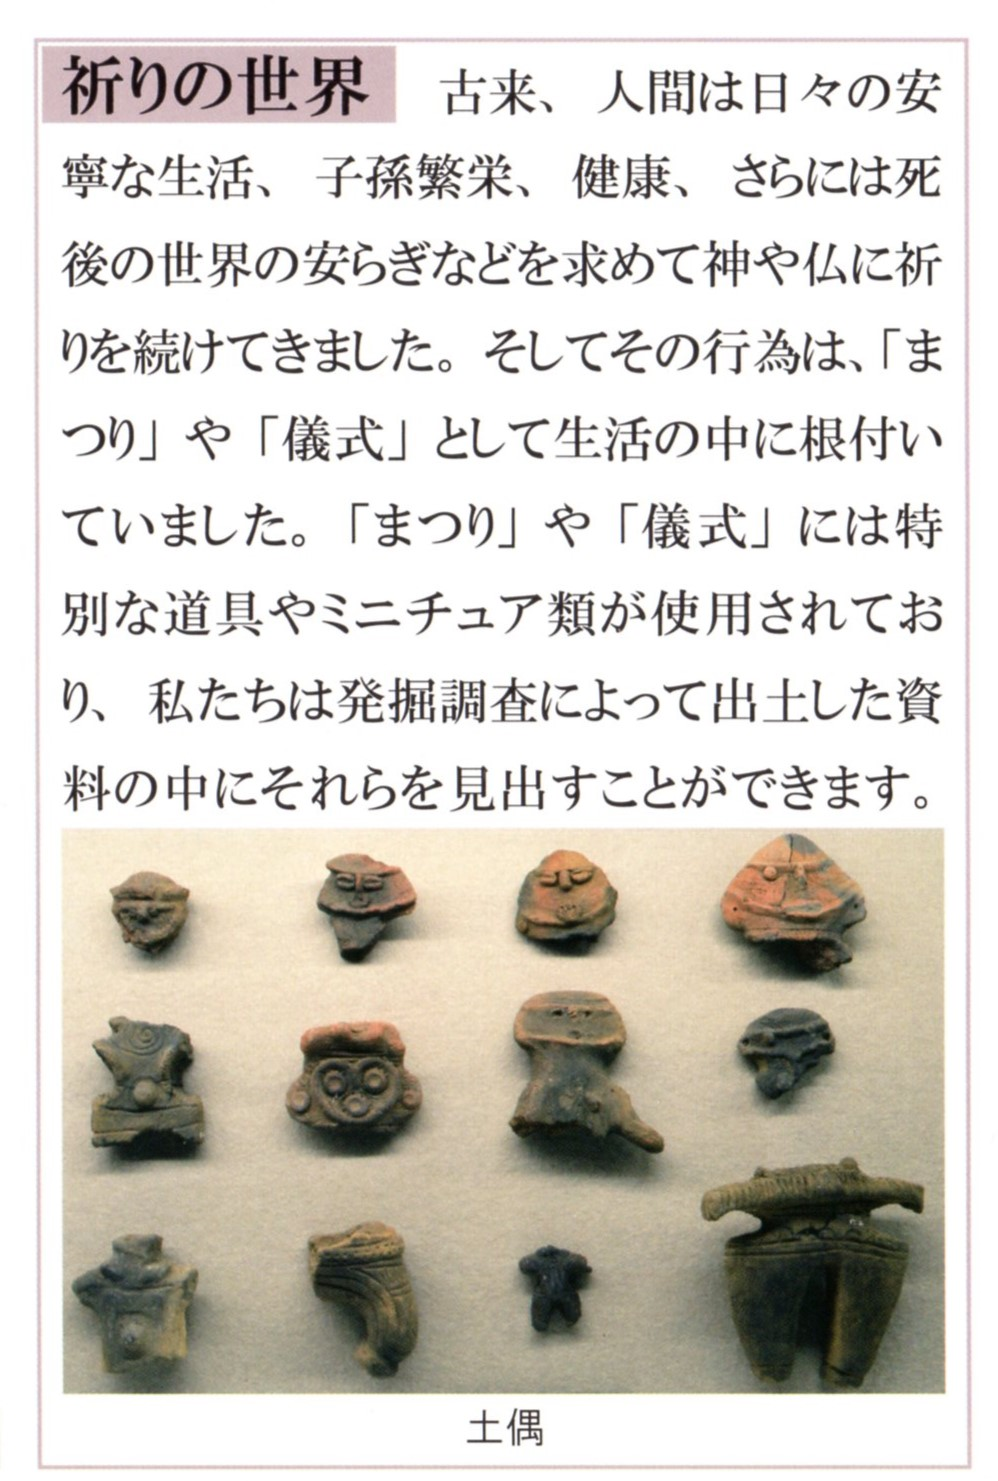 祈りの世界　古来、人間は日々の安
寧な生活、子孫繁栄、健康、さらには死
後の世界の安らぎなどを求めて神や仏に祈
りを続けてきました。そしてその行為は、「ま
つり」や「儀式」として生活の中に根付い
ていました。「まつり」や「儀式」には特
別な道具やミニチュア類が使用されてお
り、私たちは発掘調査によって出土した資
料の中にそれらを見出すことができます。
土偶